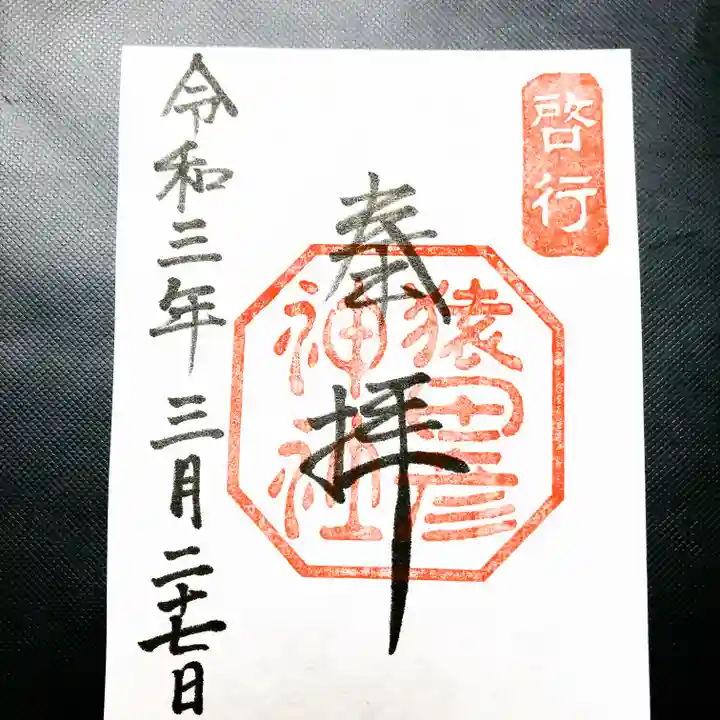 啓行
奉拝
猿田彦
神社
令和三年三月二十七日